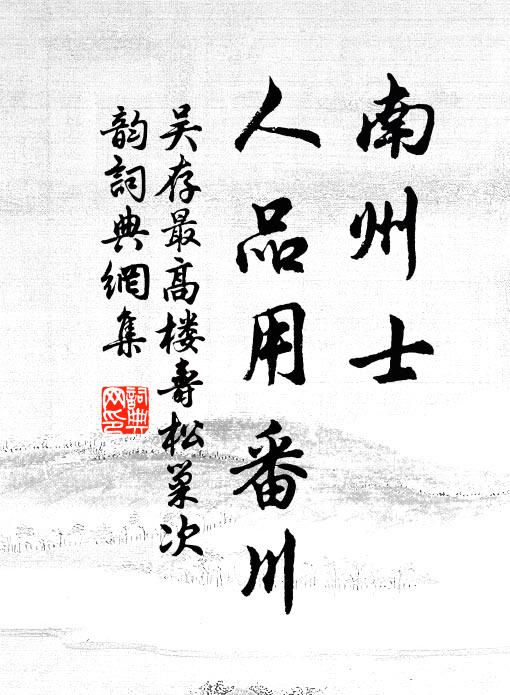 南州士
人品用番川
吴存最高楼寿松巢次
韵詞典網集
詞典網印